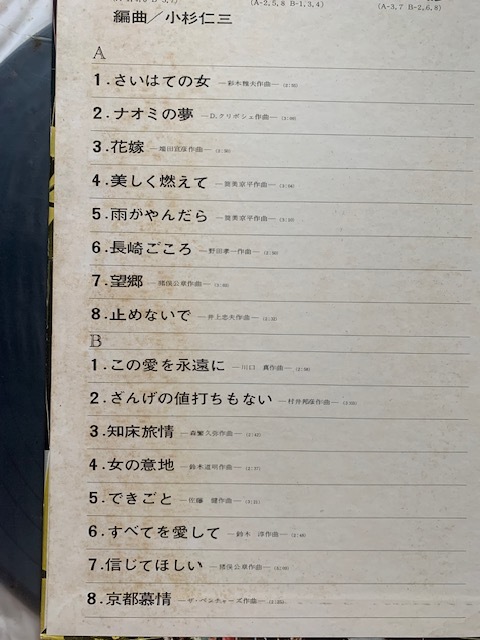 (A-2,5,8 B-1,3,4)
(A-3,7 B-2,6,8)
編曲／小杉仁三
A
1.さいはての女 ―彩木雅夫作曲―
2.ナオミの夢 ―D.クリボシェ作曲―
3.花嫁 ―端田宣彦作曲―
4.美しく燃えて ―筒美京平作曲― (3:04)
5.雨がやんだら ―筒美京平作曲―
6.長崎ごころ ―野田孝一作曲―
7.望郷 ―猪俣公章作曲―
8.止めないで ―井上忠夫作曲―
B
1.この愛を永遠に ―川口 真作曲― (2:58)
2.ざんげの値打ちもない ―村井邦彦作曲―
3.知床旅情 ―森繁久弥作曲― (2:42)
4.女の意地 ―鈴木道明作曲― (2:37)
5.できごと ―佐藤 健作曲―
6.すべてを愛して ―鈴木 淳作曲― (2:48)
7.信じてほしい ―猪俣公章作曲―
8.京都慕情 ―ザ・ベンチャーズ作曲―